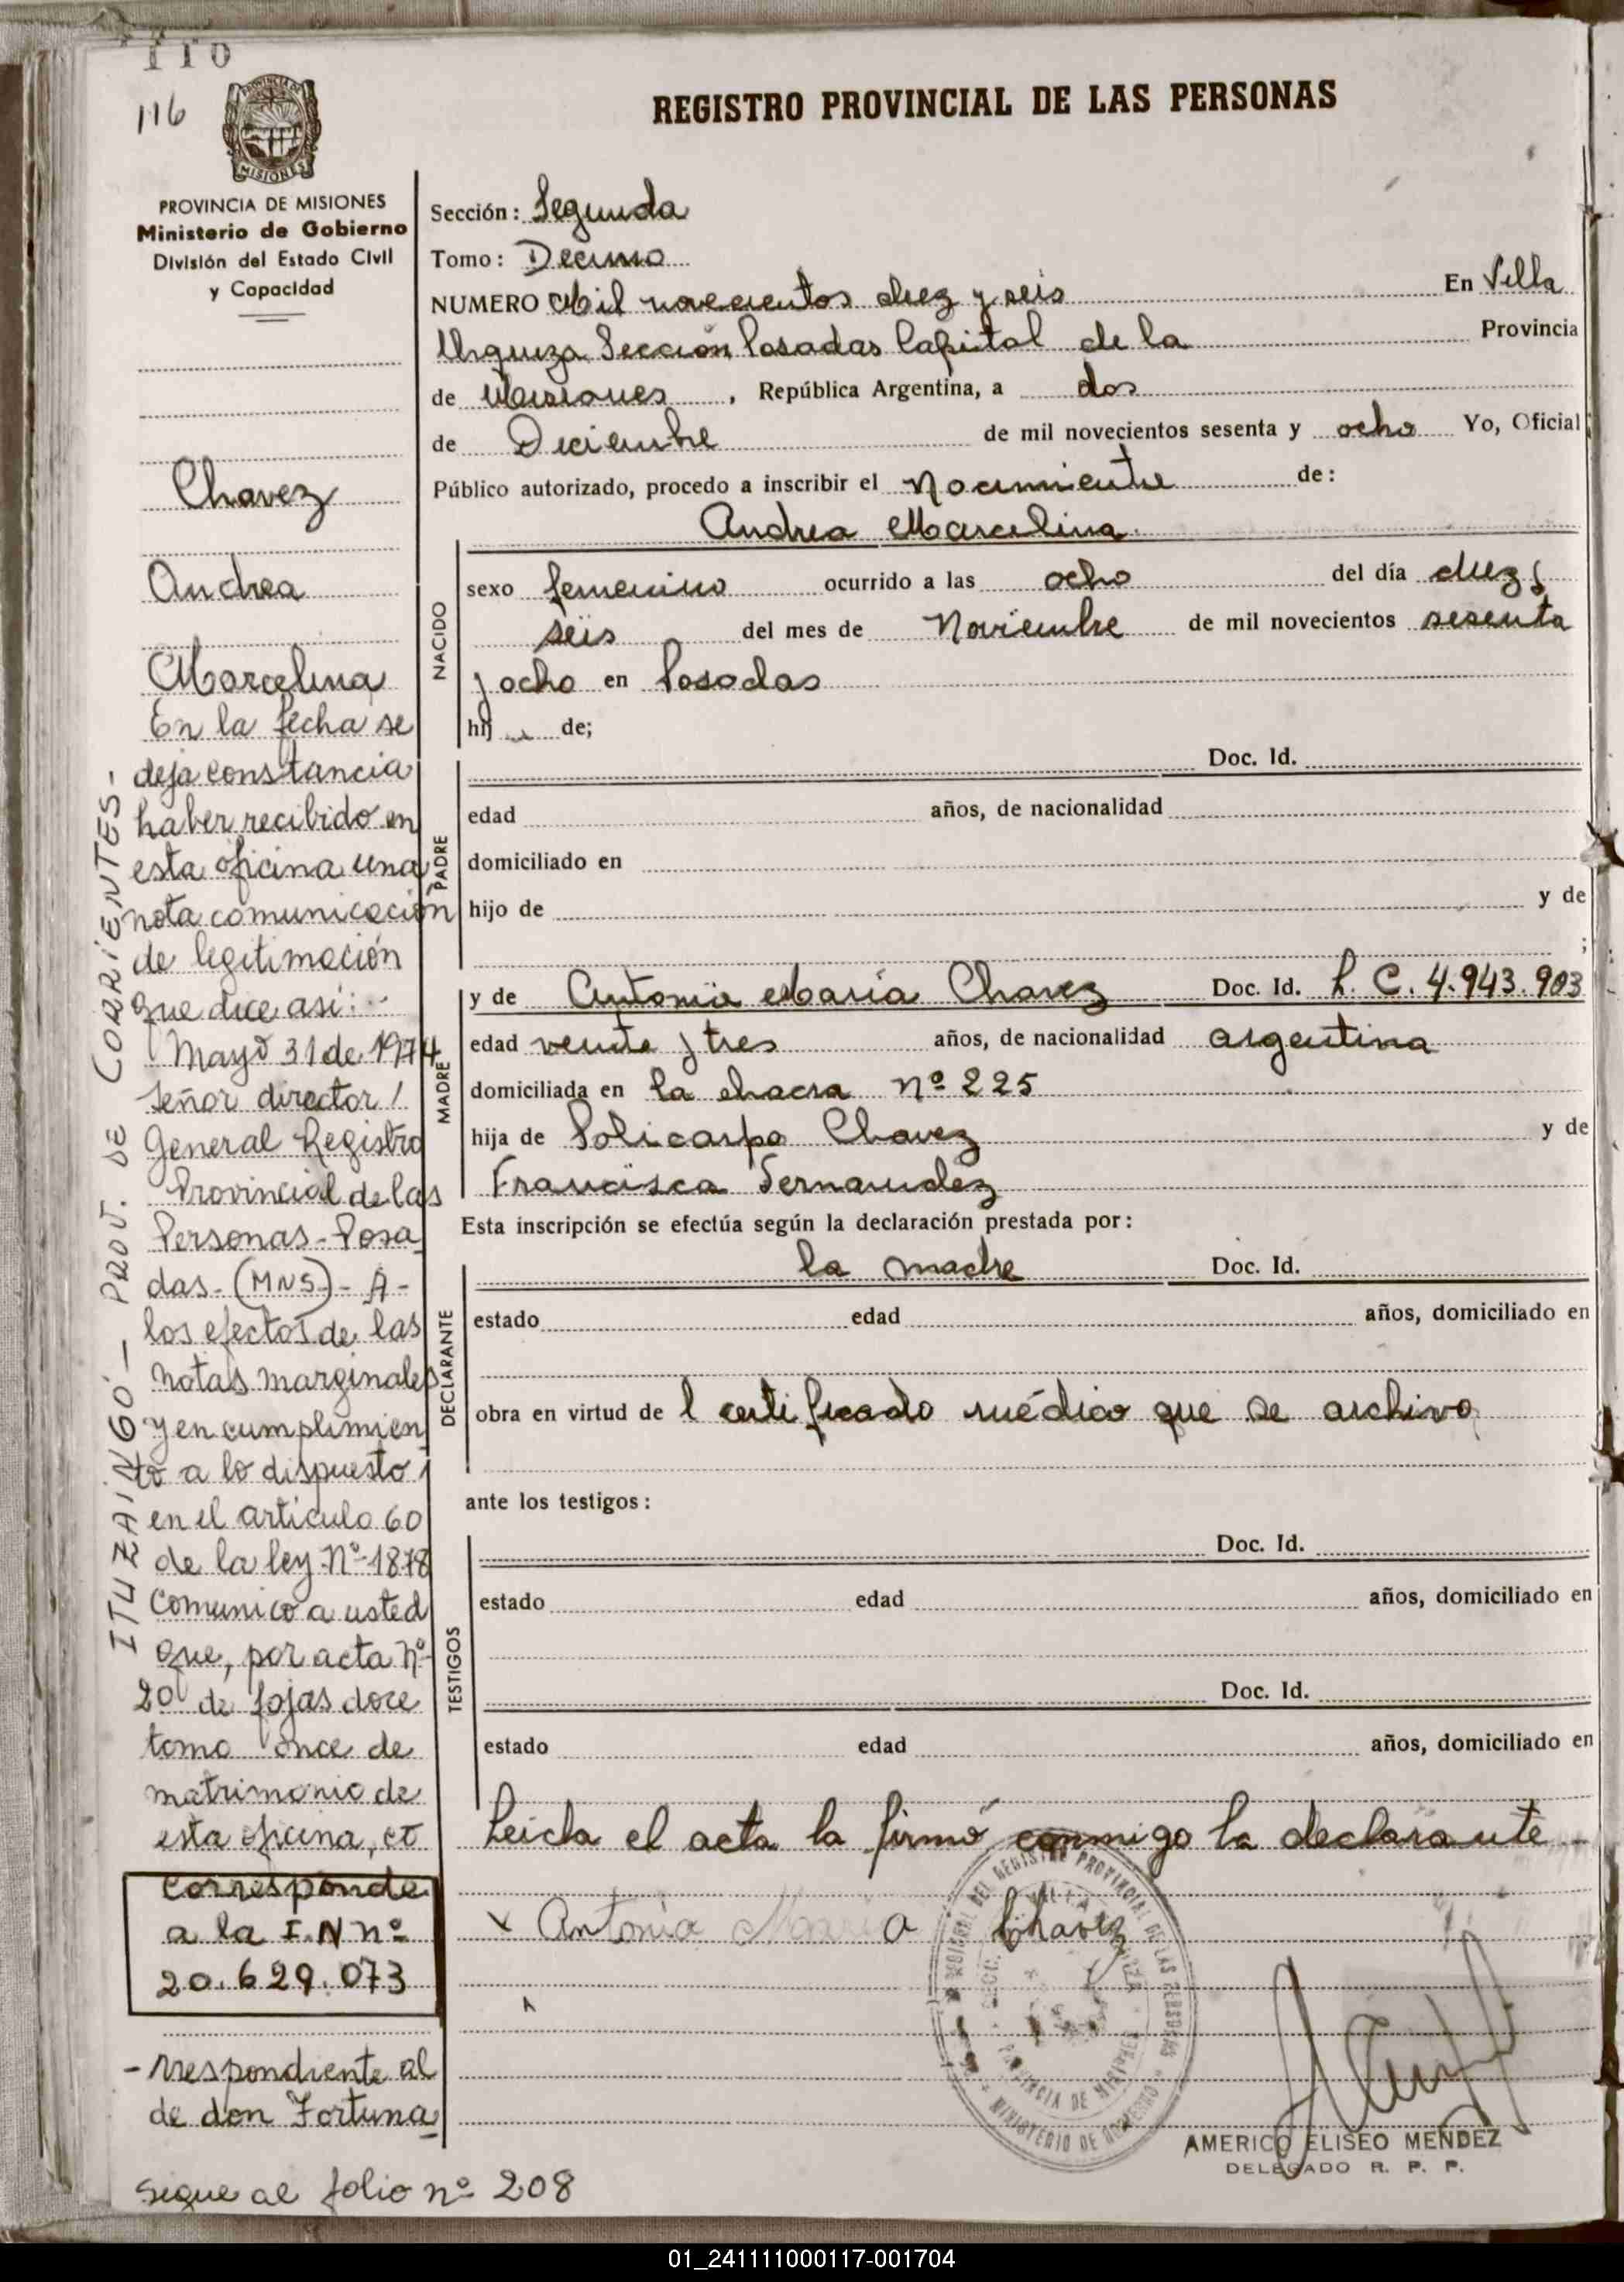 110
116
MISIONES
PROVINCIA DE MISIONES
Ministerio de Gobierno
División del Estado Civil
y Capacidad
Chavez
Andrea
Marcelina
En la fecha se
deja constancia
haber recibido en
esta oficina una
nota comunicación
de legitimación
que dice así:
Mayo 31 de 1974
señor director
General Registro
Provincial de las
Personas - Posa
das - (MNS.) - A -
los efectos de las
notas marginales
y en cumplimien
to a lo dispuesto
en el artículo 60
de la ley Nº 1878
Comunico a usted
que, por acta nº
20 de fojas doce
tomo once de
matrimonio de
esta oficina, co
Corresponde
a la I.N nº
20.629.073
- rrespondiente al
de don Fortuna
Sigue al folio nº 208
ITUZAINGÓ - PROV. DE CORRIENTES -
REGISTRO PROVINCIAL DE LAS PERSONAS
Sección: Segunda
Tomo: Decimo
NUMERO Mil novecientos diez y seis En Villa
Urquiza Sección Posadas Capital de la Provincia
de Misiones, República Argentina, a dos
de Diciembre de mil novecientos sesenta y ocho Yo, Oficial
Público autorizado, procedo a inscribir el Nacimiento de:
Andrea Marcelina
NACIDO
sexo femenino ocurrido a las ocho del día diez y
seis del mes de Noviembre de mil novecientos sesenta
y ocho en Posadas
hij de;
PADRE
Doc. Id.
edad años, de nacionalidad
domiciliado en
hijo de y de
;
MADRE
y de Antonia María Chavez Doc. Id. L. C. 4.943.903
edad veinte y tres años, de nacionalidad argentina
domiciliada en la chacra nº 225
hija de Policarpo Chavez y de
Francisca Fernandez
Esta inscripción se efectúa según la declaración prestada por:
DECLARANTE
la madre Doc. Id.
estado edad años, domiciliado en
obra en virtud de l certificado médico que se archiva
ante los testigos:
TESTIGOS
Doc. Id.
estado edad años, domiciliado en
Doc. Id.
estado edad años, domiciliado en
Leida el acta la firmó conmigo la declarante
x Antonia Maria Chavez
REGISTRO PROVINCIAL DE LAS PERSONAS
PROVINCIA DE MISIONES
MINISTERIO DE GOBIERNO
AMERICO ELISEO MENDEZ
DELEGADO R. P. P.
01_241111000117-001704